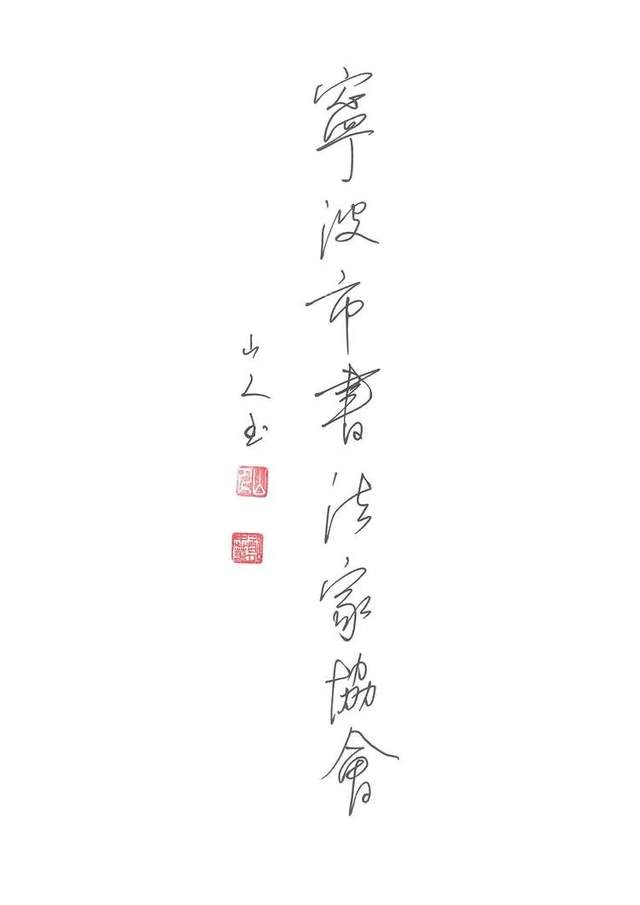 寧波市書法家協會
山人書